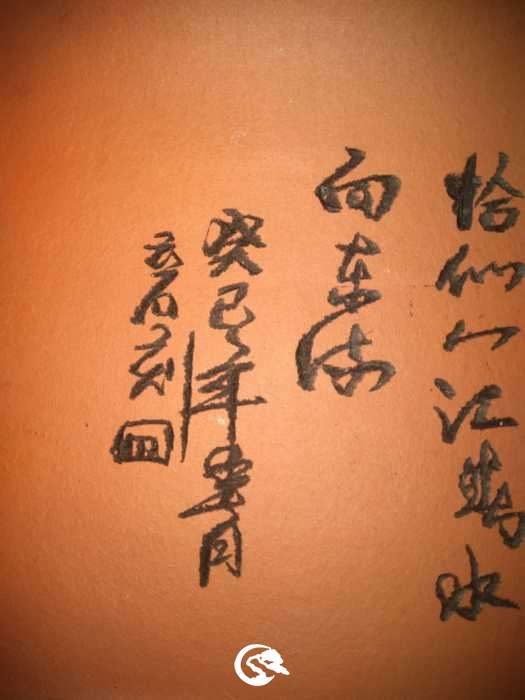 恰似一江春水
向东流
癸巳年月
石刻